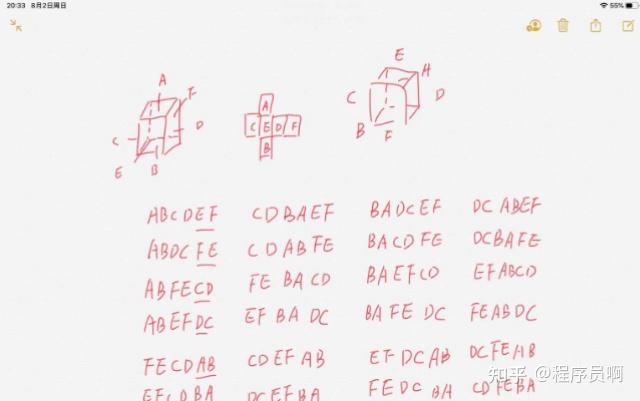 20:33 8月2日周日
55%
A
F
C
D
E
B
A
C E D F
B
E
H
C
D
B
F
ABCDEF CDBAEF BADCEF DCABEF
ABDCFE CDABFE BACDFE DCBAFE
ABFECD FEBACD BAEFCD EFABCD
ABEFDC EFBADC BAFEDC FEABDC
FECDAB CDEFAB EFDCAB DCFEAB
EFCDBA DCEFBA FEDCBA CDFEBA
知乎 @程序员啊